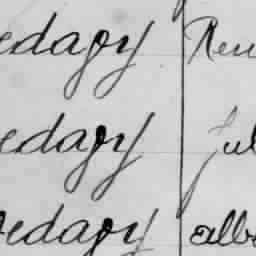 edagy Ren
edagy Jul
edagy alb